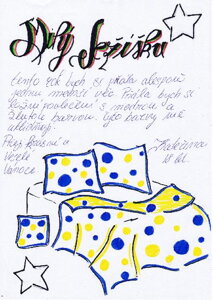 Milý Ježíšku
tento rok bych si přála alespoň
jednu maličkost
Přála bych si
ložní povlečení s modrou a
žlutou barvou. tyto barvy mě
uklidňují.
Přeji krásné a
Veselé
Vánoce.
Kateřina
18 let